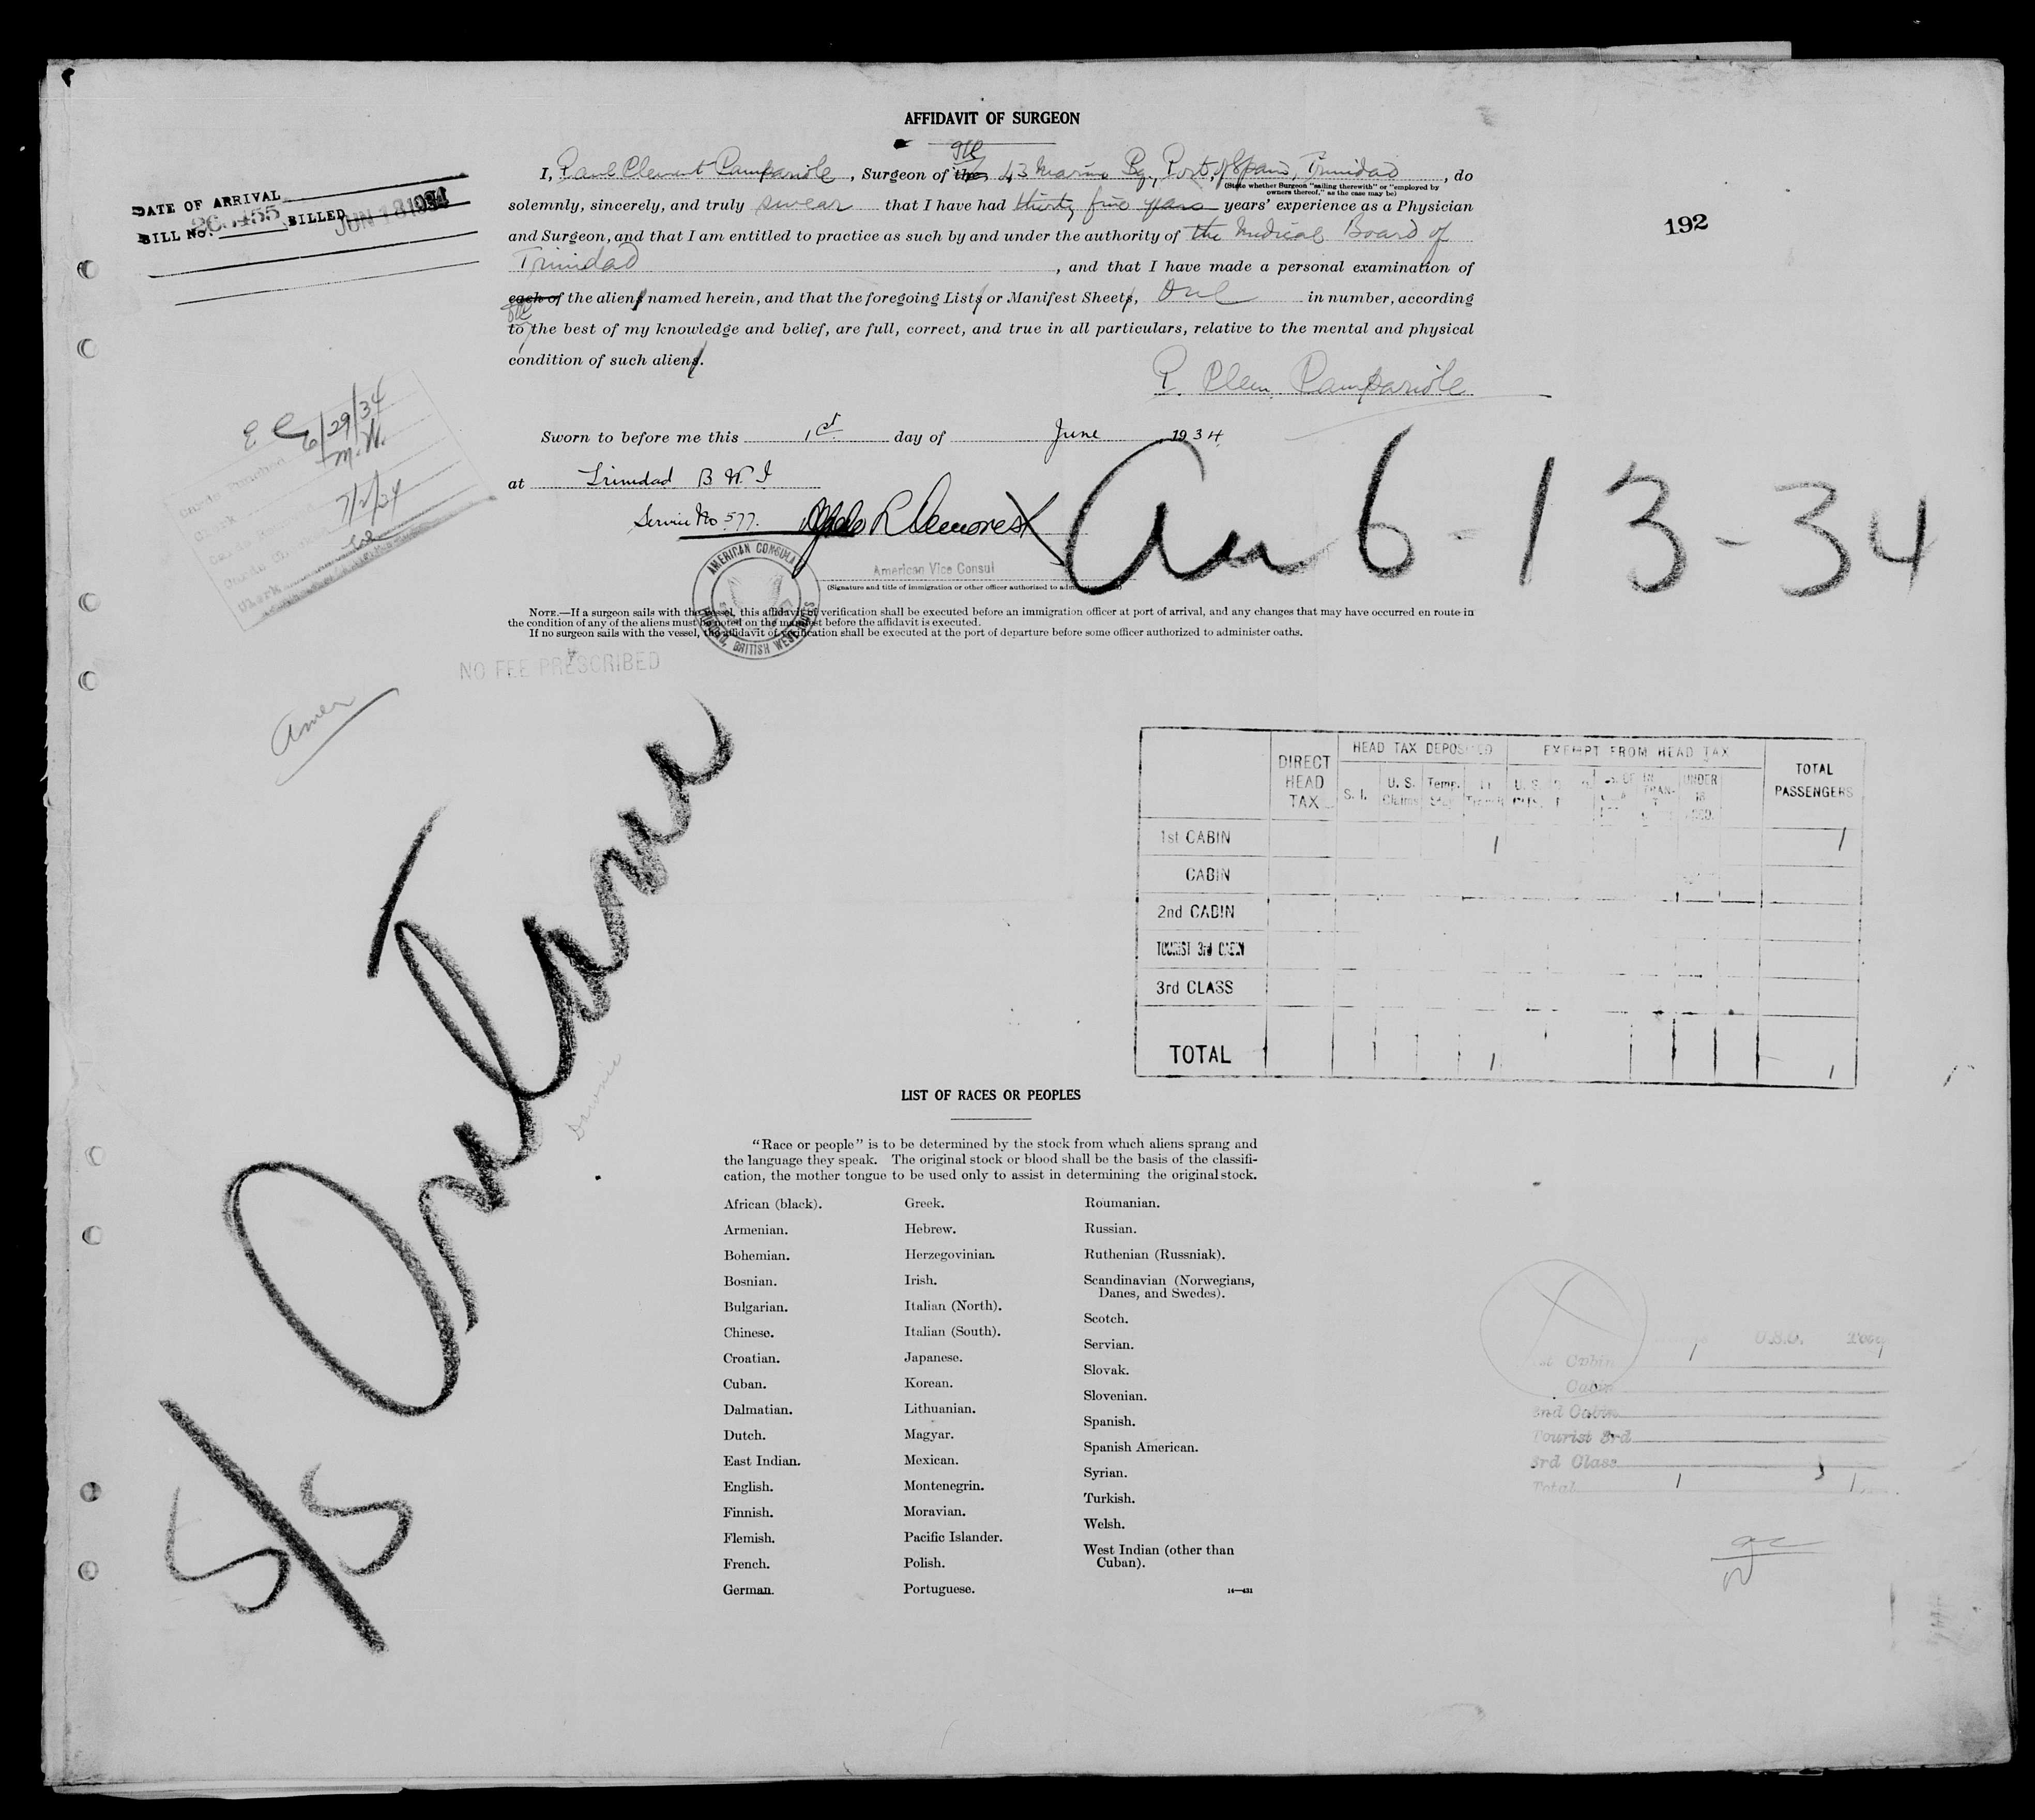 AFFIDAVIT OF SURGEON
I, Paul Clement , Surgeon of the 43 Marine Sq., Port of Spain, Trinidad, do
(State whether Surgeon "sailing therewith" or "employed by
owners thereof," as the case may be)
solemnly, sincerely, and truly swear that I have had thirty five years years' experience as a Physician
and Surgeon, and that I am entitled to practice as such by and under the authority of the Medical Board of
Trinidad, and that I have made a personal examination of
each of the aliens named herein, and that the foregoing Lists or Manifest Sheets, One in number, according
to the best of my knowledge and belief, are full, correct, and true in all particulars, relative to the mental and physical
condition of such aliens.
P. Clem.
Sworn to before me this 1st day of June 1934
at Trinidad B W I
Service No 577.
American Vice Consul
(Signature and title of immigration or other officer authorized to
AMERICAN CONSULA
BRITISH WEST INDIES
NOTE.—If a surgeon sails with the vessel, this affidavit of verification shall be executed before an immigration officer at port of arrival, and any changes that may have occurred en route in
the condition of any of the aliens must be noted on the manifest before the affidavit is executed.
If no surgeon sails with the vessel, the affidavit of verification shall be executed at the port of departure before some officer authorized to administer oaths.
DATE OF ARRIVAL
BILL No. BILLED JUN 18 1934
192
6/29/34
M.W.
7/2/34
Clerk
6-13-34
NO FEE PRESCRIBED
Amer
S/S
DIRECT HEAD TAX
HEAD TAX DEPOSITED
EXEMPT FROM HEAD TAX
TOTAL PASSENGERS
S. I.
U. S. Claims
Temp. Stay
UNDER 16
1st CABIN 1 1
CABIN
2nd CABIN
TOURIST 3rd CABIN
3rd CLASS
TOTAL 1 1
LIST OF RACES OR PEOPLES
"Race or people" is to be determined by the stock from which aliens sprang and
the language they speak. The original stock or blood shall be the basis of the classifi-
cation, the mother tongue to be used only to assist in determining the original stock.
African (black).
Armenian.
Bohemian.
Bosnian.
Bulgarian.
Chinese.
Croatian.
Cuban.
Dalmatian.
Dutch.
East Indian.
English.
Finnish.
Flemish.
French.
German.
Greek.
Hebrew.
Herzegovinian.
Irish.
Italian (North).
Italian (South).
Japanese.
Korean.
Lithuanian.
Magyar.
Mexican.
Montenegrin.
Moravian.
Pacific Islander.
Polish.
Portuguese.
Roumanian.
Russian.
Ruthenian (Russniak).
Scandinavian (Norwegians,
Danes, and Swedes).
Scotch.
Servian.
Slovak.
Slovenian.
Spanish.
Spanish American.
Syrian.
Turkish.
Welsh.
West Indian (other than
Cuban).
16—431
1st Cabin 1
Cabin
2nd Cabin
Tourist 3rd
3rd Class
Total 1 1